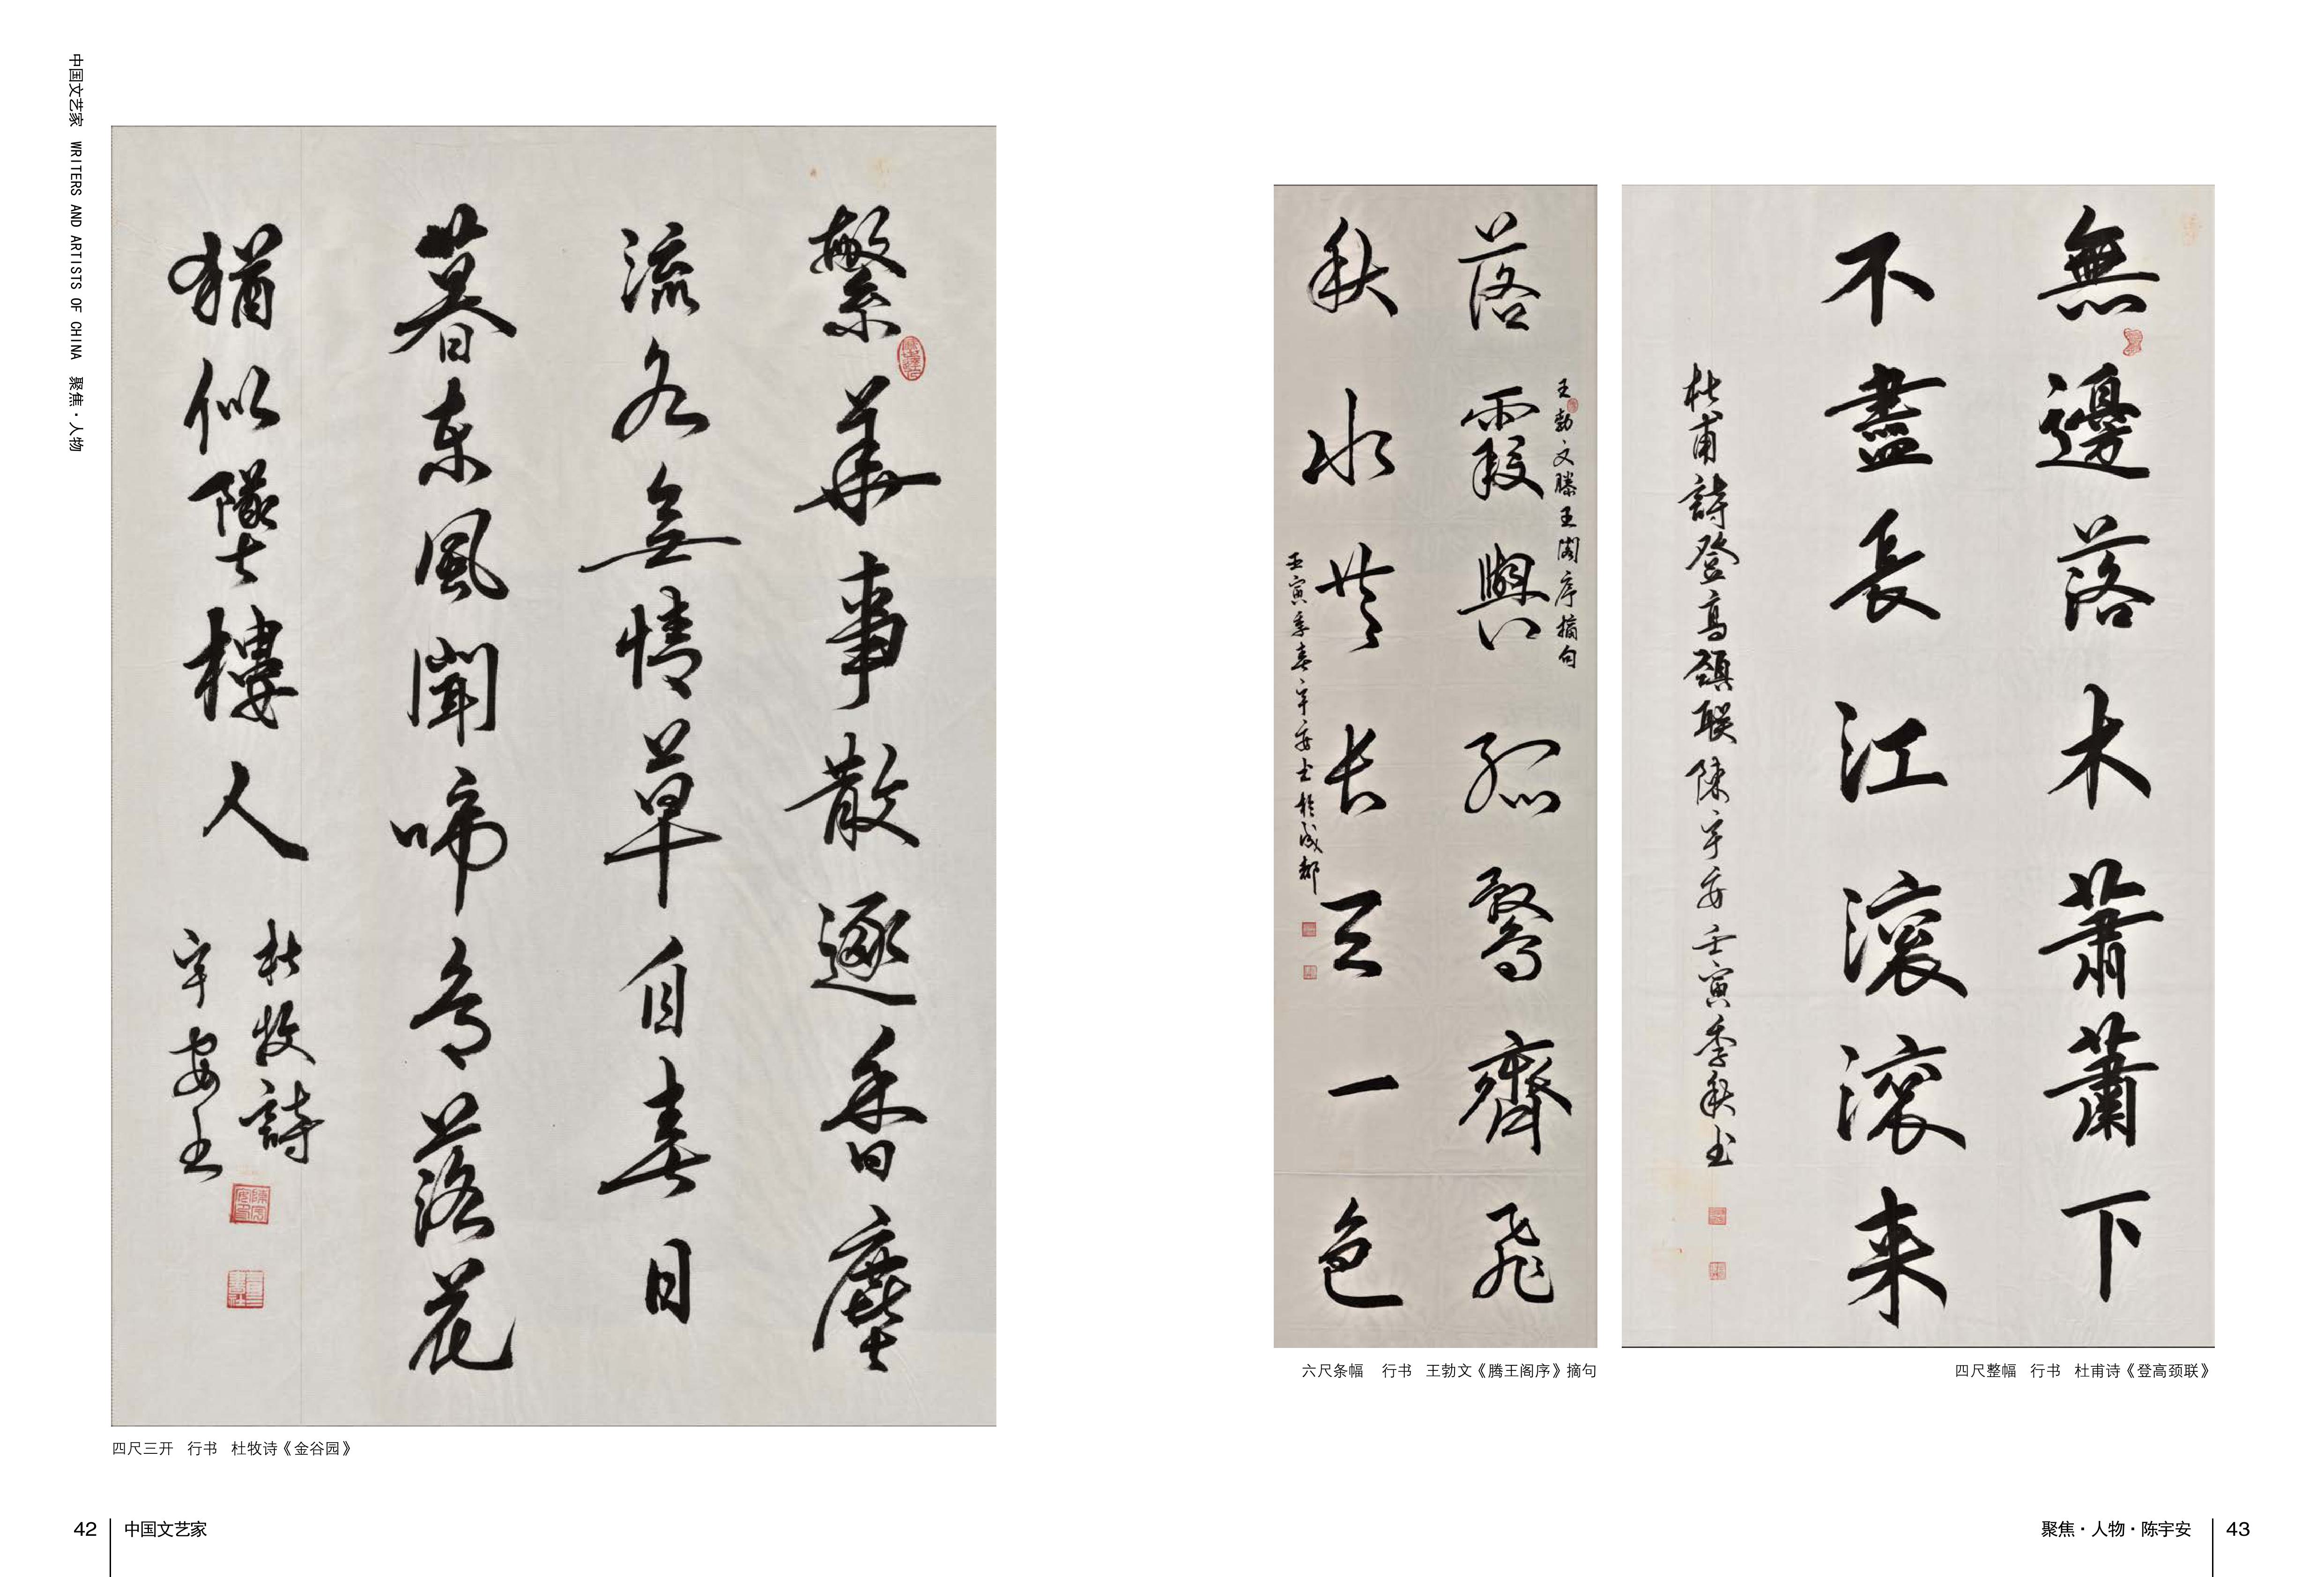 中国文艺家 WRITERS AND ARTISTS OF CHINA 聚焦·人物
繁華事散逐香塵
流水無情草自春
日
暮東風聞啼鳥落花
猶似墜樓人
杜牧詩
宇安书
四尺三开 行书 杜牧诗《金谷园》
42 中国文艺家
無邊落木蕭蕭下
不盡長江滚滚来
杜甫詩登高頷联陳宇安壬寅季秋书
四尺整幅 行书 杜甫诗《登高颈联》
王勃文滕王阁序摘句
落霞與孤鶩齊飛
秋水共长天一色
壬寅季春宇安书於成都
六尺条幅 行书 王勃文《腾王阁序》摘句
聚焦·人物·陈宇安 43